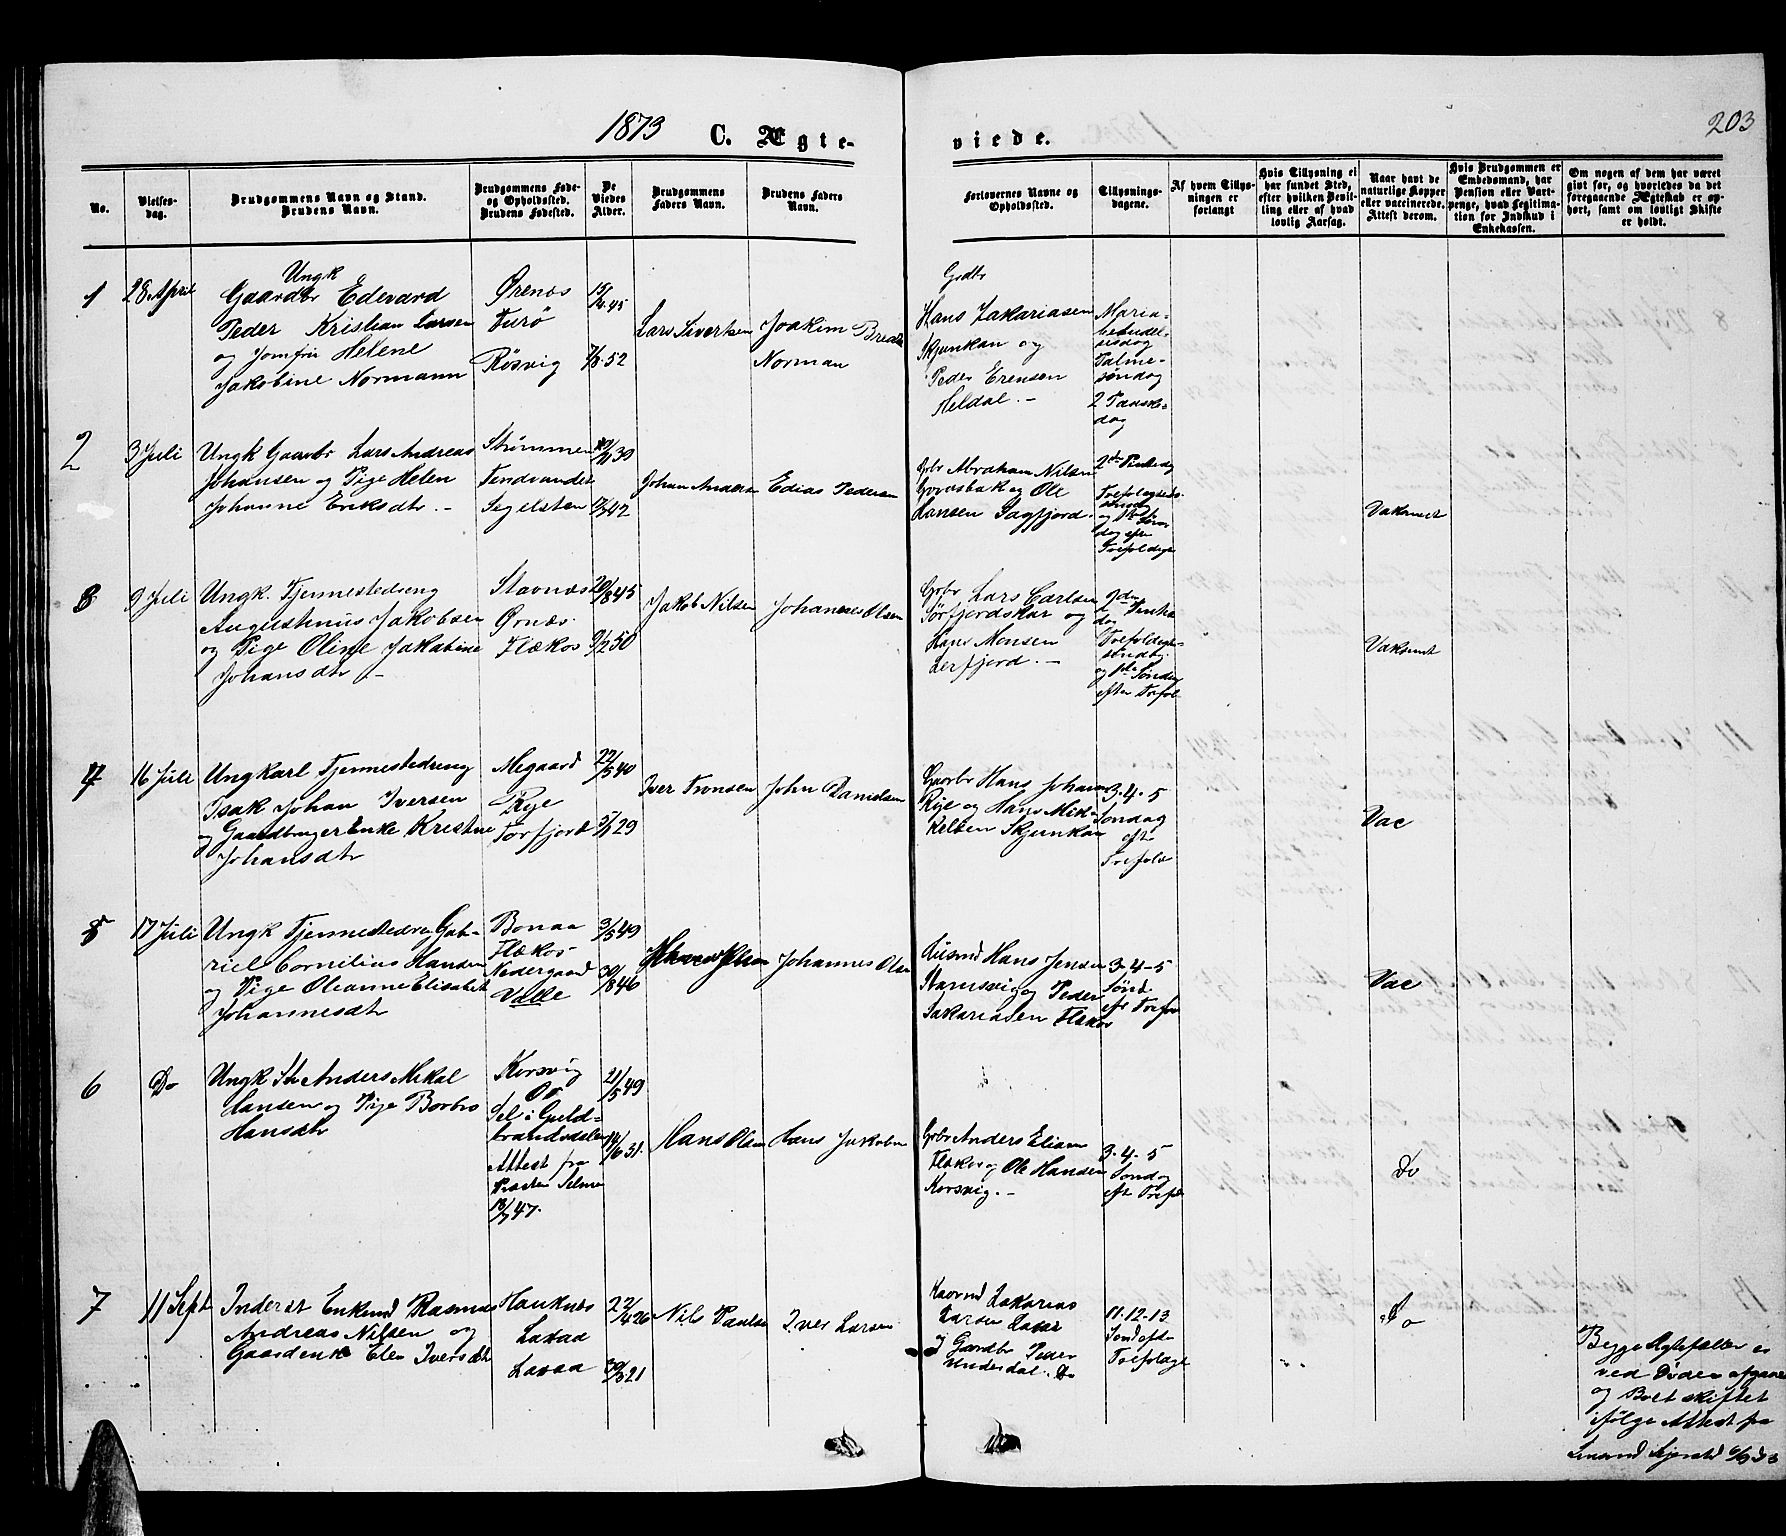 1873 C. Ægte- viede. 203
No.
Vielses-
dag.
Brudgommens Navn og Stand.
Brudens Navn.
Brudgommens Føde-
og Opholdssted.
Brudens Fødested.
De
Viedes
Alder.
Brudgommens
Faders Navn.
Brudens Faders
Navn.
Forlovernes Navne og
Opholdssted.
Tillysnings-
dagene.
Af hvem Tillys-
ningen er
forlangt
Hvis Tillysning ei
har fundet Sted,
efter hvilken Bevil-
ling eller af hvad
lovlig Aarsag.
Naar havt de
naturlige Kopper
eller vaccinerede.
Attest derom.
Hvis Brudgommen er
Embedsmand, har
Pension eller Vart-
penge, hvad Legitima-
tion for Indskud i
Enkekassen.
Om nogen af dem har været
gift før, og hvorledes da det
foregaaende Ægteskab er op-
hørt, samt om lovligt Skifte
er holdt.
1
28 April
Ungk
Gaardbr Edevard
Peder Kristian Larsen
og Jomfru Helene
Jakobine Normann
Ørenæs
Turö
Rösvig
15/4 45
7/8 52
Lars Sivertsen
Joakim
Norman
Grdbr
Hans Zakariasen
Skjunkan og
Peder Erensen
Heldal. -
Maria-
bebudel-
sesdag
Palme-
søndag
2 Paaske-
dag
2
3 Juli
Ungk Gaardbr Lars Andreas
Johansen og Pige Helen
Johanne Eriksdtr. -
Strømmen
Tendvander
Segelsten
39
42
Johan Anderse
Edias Pedersen
Grbr Abraham Nilsen
og Ole
Hansen Sagfjord.
2den Pintsedag
og 1ste Søn
dag efter
Vaksinert
3
9 Juli
Ungk. Tjennestedreng
Augustinus Jakobsen
og Pige Oline Jakobine
Johansdtr -
Stavnæs
Ørnæs.
Flækos
20/8 45
9/2 50
Jakob Nilsen
Johannes Olsen
Grbr Lars Carlsen
Sørfjordskar og
Hans Monsen
Lerfjord. -
og 1ste Søndag
efter Trefol
4
16 Juli
Ungkarl Tjennestedreng
Isak Johan Iversen
og Gaardbruger Enke Kristne
Johansdtr
Megaard
Rye
Torfjord
22/5 40
29
Iver Tronsen
John Danielsen
Gaardbr Hans Johans
Rye og Hans Mik-
kelsen Skjunkan
3-4-5
Søndag
eft
Trefold
Vac
5
17 Juli
Ungk Tjennestedren Gab-
riel Cornilius Hansen
og Pige Oleanne Elisabet
Johannesdtr
Bonaa
Flækos
Nedergaard
Valle
3/5 49
30/8 46
Johannes Olsen
Husmd Hans Jensen
Stamsvig og Peder
Sakariasen Flekos
3-4-5
Sønd.
eft Trefor
Vac
6
Do
Ungk Anders Mikal
Hansen og Pige Borbro
Hansdtr
Korsvig
Do
Sel i Guld-
brandsdalen
Attest fra
47.
21/5 49
14/6 31.
Hans Olsen
Hans Jakobsen
Grbr Anders Eliasen
Flækos og Ole Hansen
Korsvig. -
3-4-5
Søndag
eft Trefol
Do
7
11 Sept
Inderst Enkemd Rasmus
Andreas Nilsen og
Gaardenke Elen Iversdtr
Hauknæs
Laxaa
Laxaa
22/4 26
21
Nils Paulsen
Iver Larsen
Zakarias
Larsen
og Gaardbr Peder
Underdal. Do
11-12-13
Sønd efter
Trefoldigt
Do
Begge Ægtefæller er
ved Døden afgaaet
og Boet skiftet
ifølge Attest fra